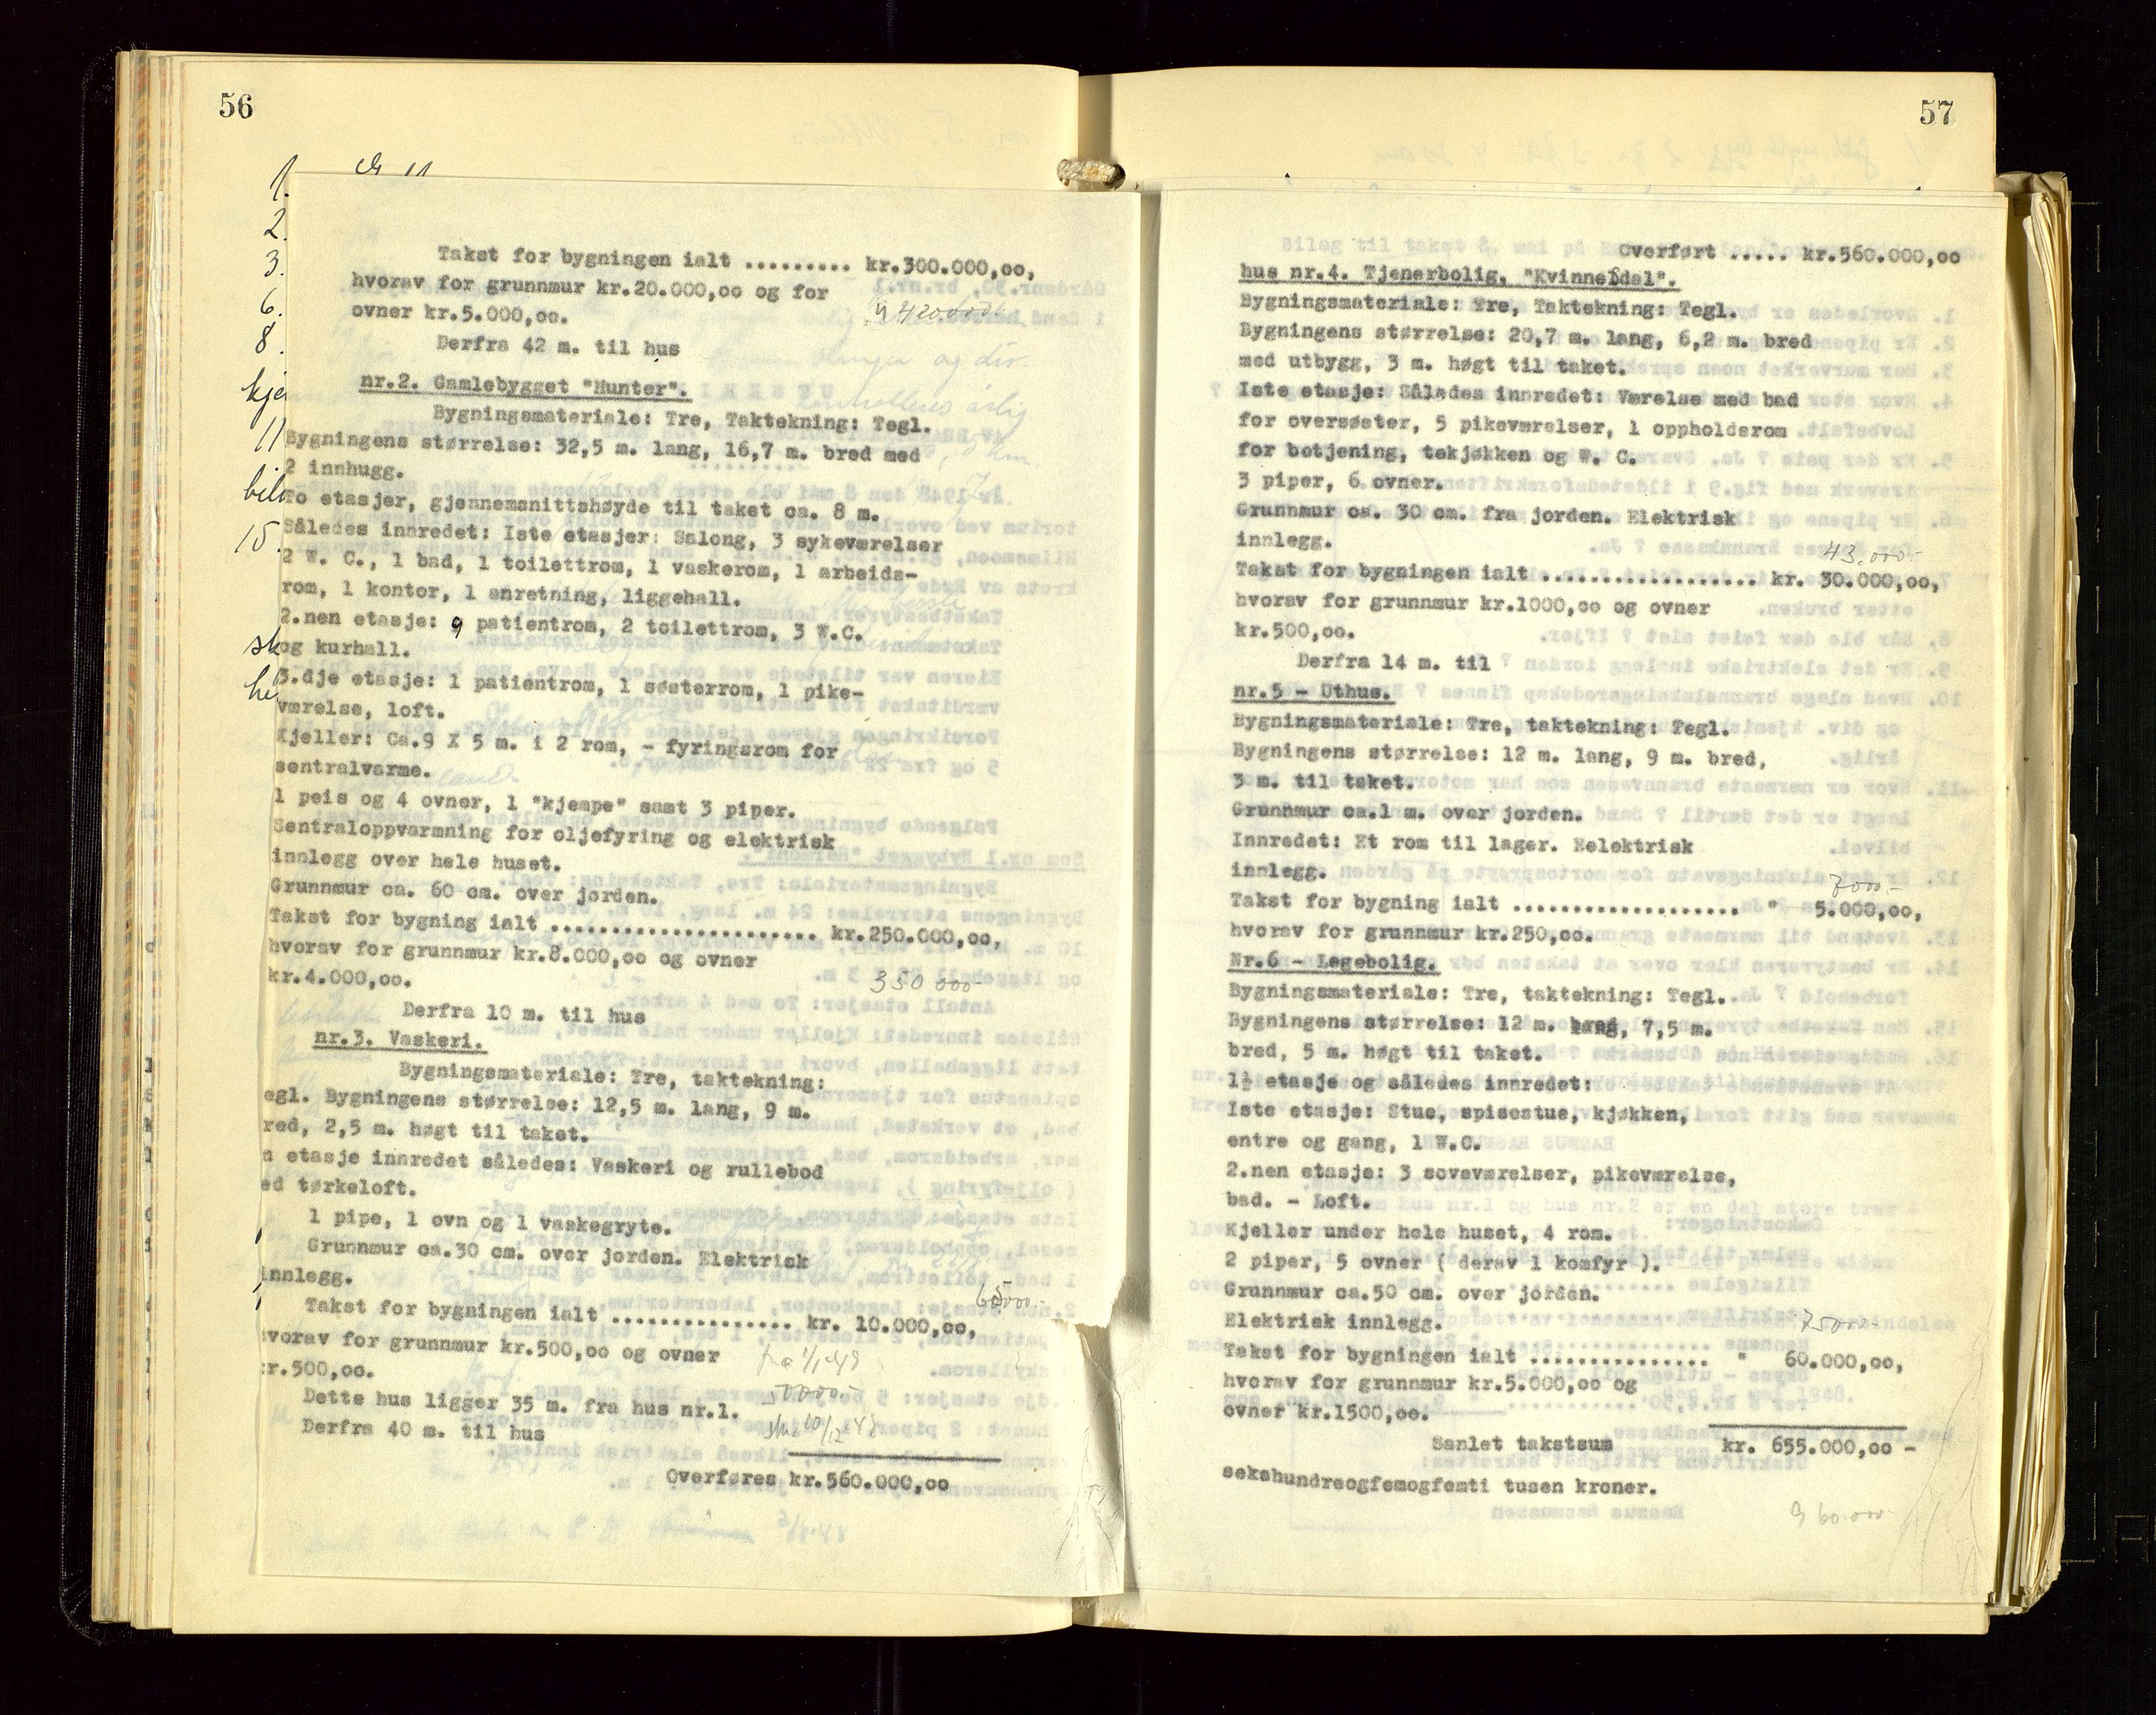 56
1.
2.
3.
6.
8.
kje
11
bil
15.
sk
he
Takst for bygningen ialt ......... kr.300.000,oo,
hvorav for grunnmur kr.20.000,oo og for
ovner kr.5.000,oo.
420.000.-
Derfra 42 m. til hus
nr.2. Gamlebygget "Hunter".
Bygningsmateriale: Tre, Taktekning: Tegl.
Bygningens størrelse: 32,5 m. lang, 16,7 m. bred med
2 innhugg.
To etasjer, gjennemsnittshøyde til taket ca. 8 m.
Således innredet: Iste etasjer: Salong, 3 sykeværelser
2 W. C., 1 bad, 1 toilettrom, 1 vaskerom, 1 arbeids-
rom, 1 kontor, 1 anretning, liggehall.
2.nen etasje: 9 patientrom, 2 toilettrom, 3 W.C.
og kurhall.
3.dje etasje: 1 patientrom, 1 søsterrom, 1 pike-
værelse, loft.
Kjeller: Ca.9 X 5 m. i 2 rom, - fyringsrom for
sentralvarme.
1 peis og 4 ovner, 1 "kjempe" samt 3 piper.
Sentraloppvarmning for oljefyring og elektrisk
innlegg over hele huset.
Grunnmur ca. 60 cm. over jorden.
Takst for bygning ialt ...................... kr.250.000,oo,
hvorav for grunnmur kr.8.000,oo og ovner
kr.4.000,oo.
350 000-
Derfra 10 m. til hus
nr.3. Vaskeri.
Bygningsmateriale: Tre, taktekning:
egl. Bygningens størrelse: 12,5 m. lang, 9 m.
red, 2,5 m. høgt til taket.
n etasje innredet således: Vaskeri og rullebod
ed tørkeloft.
1 pipe, 1 ovn og 1 vaskegryte.
Grunnmur ca.30 cm. over jorden. Elektrisk
innlegg.
65000.-
Takst for bygningen ialt ............... kr. 10.000,oo,
vorav for grunnmur kr.500,oo og ovner
r.500,oo.
fra 1/1-49
50000.-
Dette hus ligger 35 m. fra hus nr.1.
Derfra 40 m. til hus
20/12 48
Overføres kr.560.000,oo
57
Overført ..... kr.560.000,oo
hus nr.4. Tjenerbolig, "Kvinnedal".
Bygningsmateriale: Tre, Taktekning: Tegl.
Bygningens størrelse: 20,7 m. lang, 6,2 m. bred
med utbygg, 3 m. høgt til taket.
Iste etasje: Således innredet: Værelse med bad
for oversøster, 5 pikeværelser, 1 oppholdsrom
for betjening, tekjøkken og W. C.
3 piper, 6 ovner.
Grunnmur ca. 30 cm. fra jorden. Elektrisk
innlegg.
43.000.-
Takst for bygningen ialt .................. kr. 30.000,oo,
hvorav for grunnmur kr.1000,oo og ovner
kr.500,oo.
Derfra 14 m. til
nr.5 - Uthus.
Bygningsmateriale: Tre, taktekning: Tegl.
Bygningens størrelse: 12 m. lang, 9 m. bred,
3 m. til taket.
Grunnmur ca.1 m. over jorden.
Innredet: Et rom til lager. Eelektrisk
innlegg.
7000.-
Takst for bygning ialt ................... " 5.000,oo,
hvorav for grunnmur kr.250,oo.
Nr.6 - Legebolig.
Bygningsmateriale: Tre, taktekning: Tegl.
Bygningens størrelse: 12 m. lang, 7,5 m.
bred, 5 m. høgt til taket.
1½ etasje og således innredet:
Iste etasje: Stue, spisestue, kjøkken,
entre og gang, 1 W.C.
2.nen etasje: 3 soveværelser, pikeværelse,
bad. - Loft.
Kjeller under hele huset, 4 rom.
2 piper, 5 ovner ( derav 1 komfyr ).
Grunnmur ca.50 cm. over jorden.
Elektrisk innlegg.
75000-
Takst for bygningen ialt ............... " 60.000,oo,
hvorav for grunnmur kr.5.000,oo og
ovner kr.1500,oo.
Samlet takstsum kr. 655.000,oo -
sekshundreogfemogfemti tusen kroner.
960.000